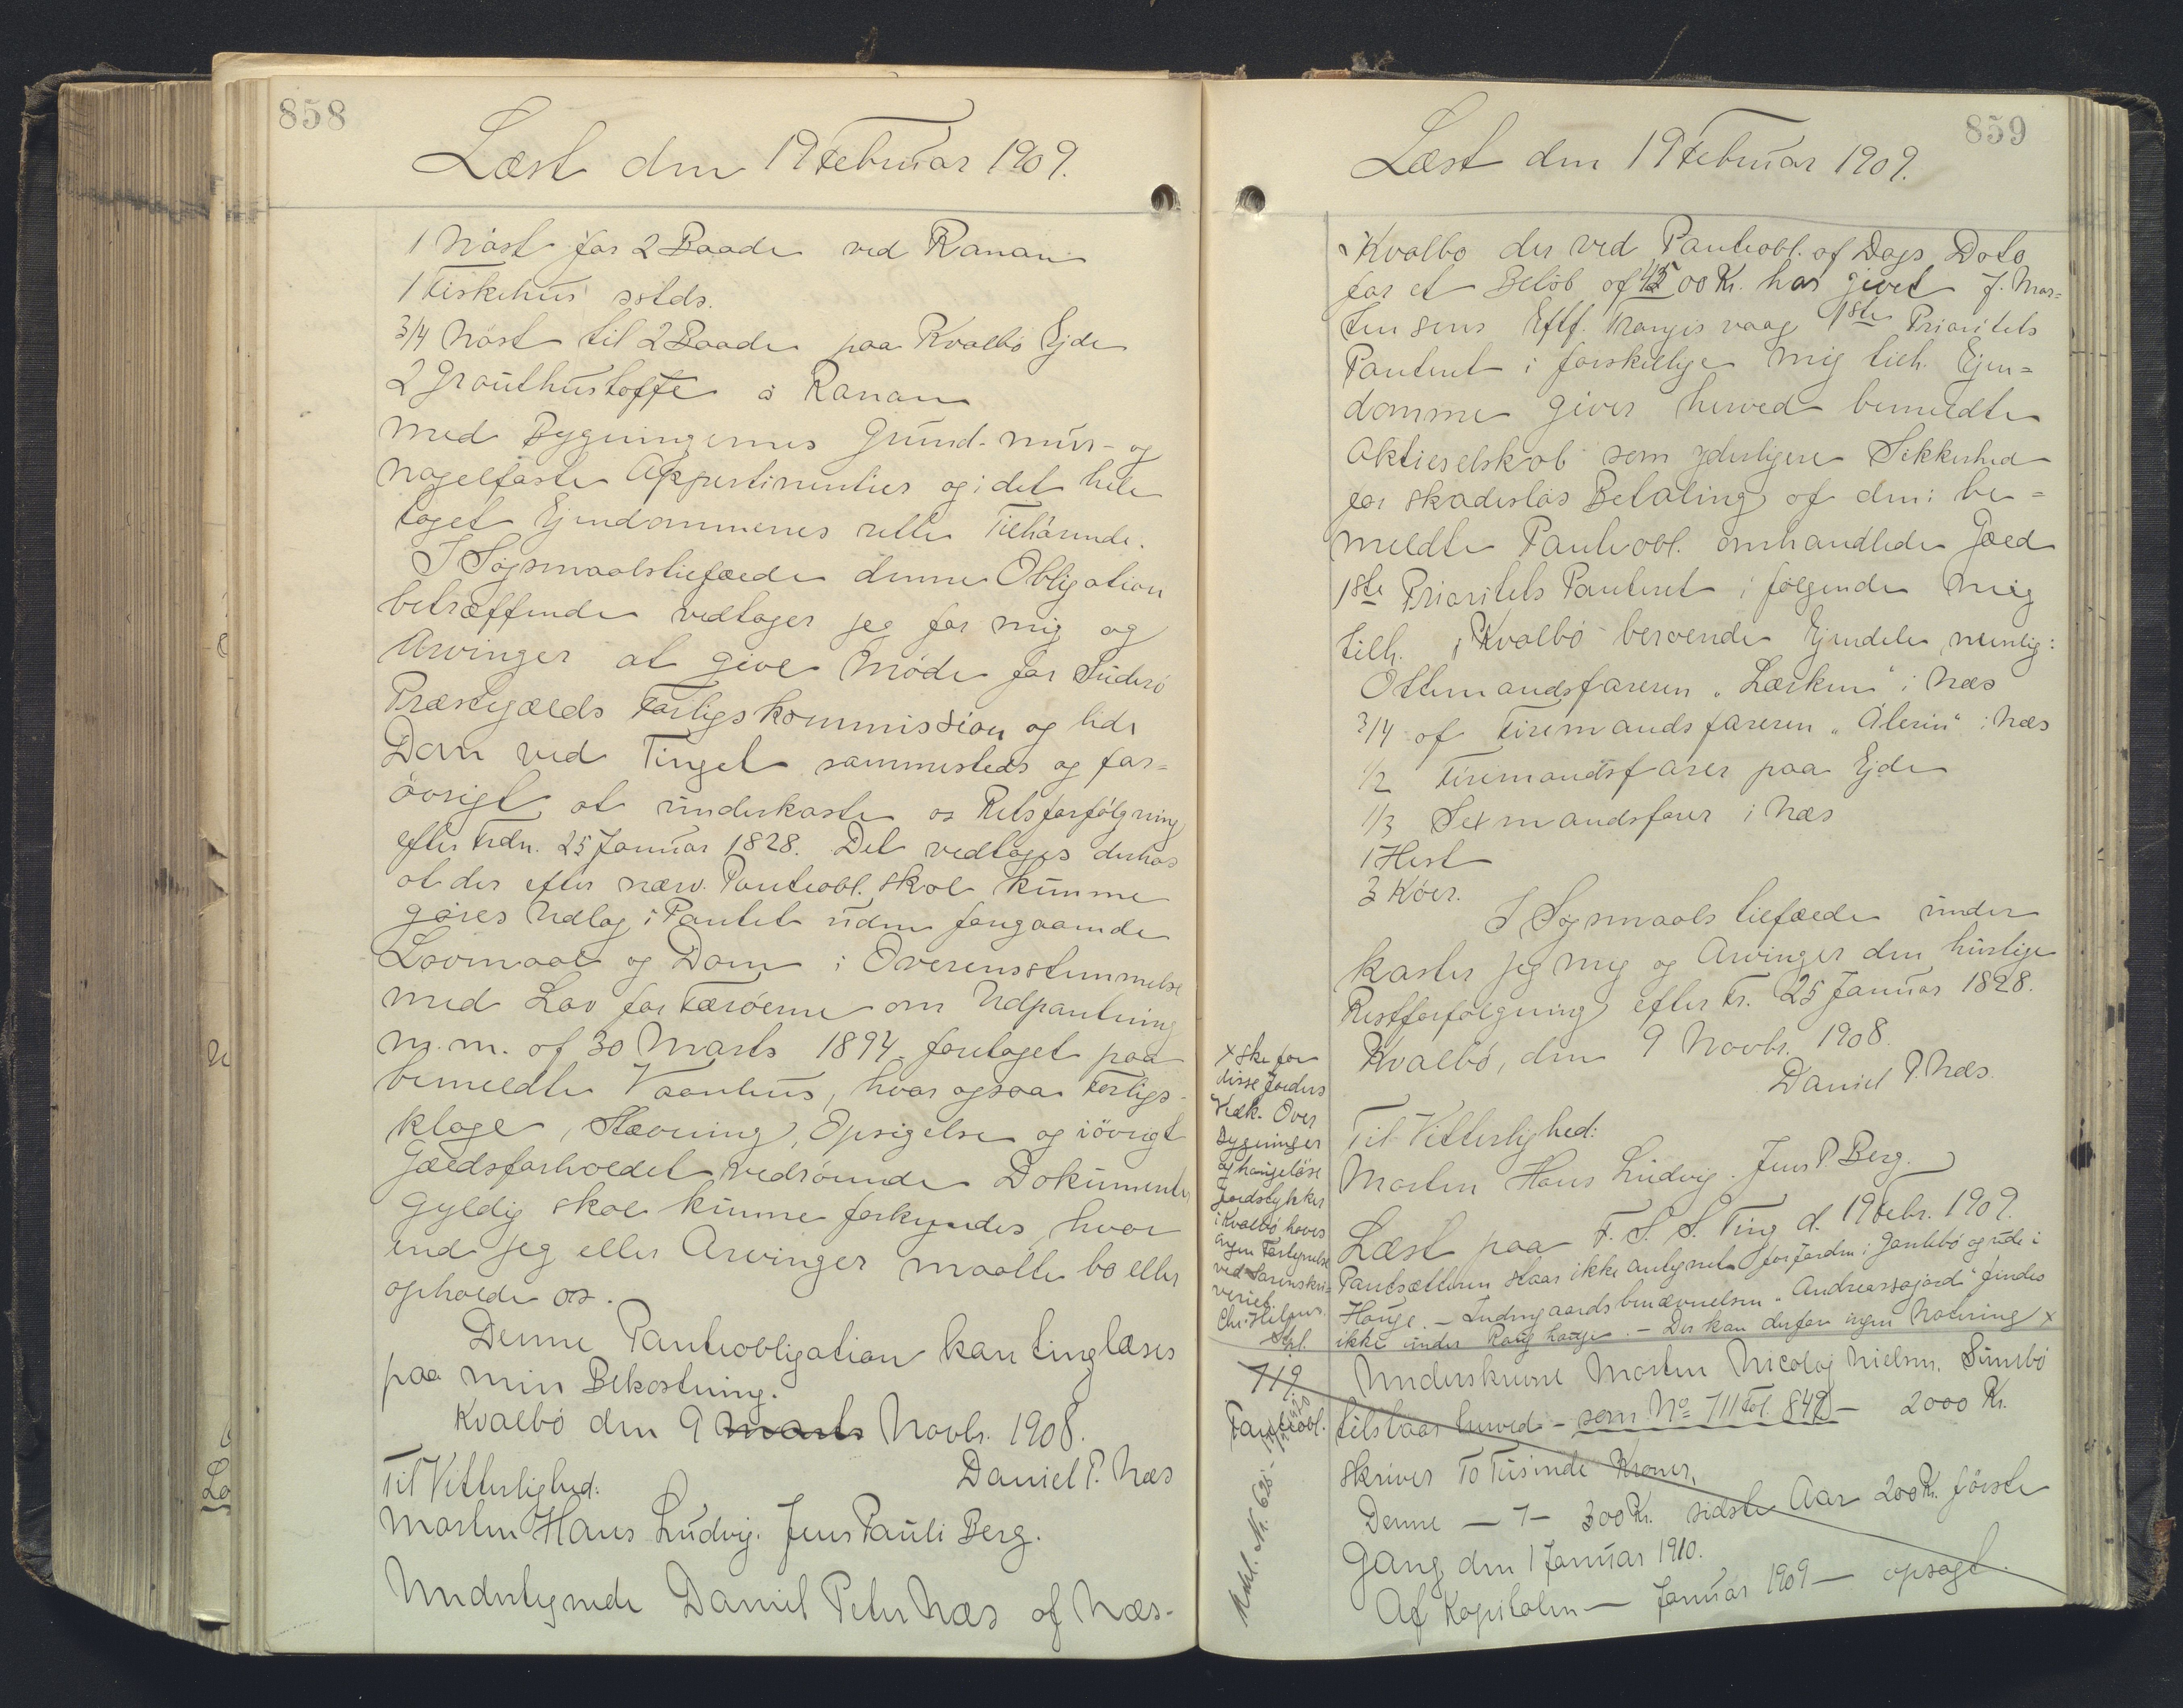 858
Læst den 19 Februar 1909.
1 Nøst for 2 Baade ved Ranan
1 Fiskehus sstds.
3/4 Nøst til 2 Baade paa Kvalbø Ejde
2 Grouthustofte á Ranan
med Bygningernes Grund- mur- og
nagelfaste Appertinentier og i det hele
taget Ejendommenes rette Tilhørende.
I Søgsmaalstilfælde denne Obligation
betræffende vedtager jeg for mig og
Arvinger at give Møde for Suderø
Præstegjælds Forligskommission og lide
Dom ved Tinget sammesteds og for-
øvrigt at underkaste os Retsforfølgning
efter Frdn. 25 Januar 1828. Det vedtages derhos
at der efter nærv. Panteobl. skal kunne
gøres Udlæg i Pantet uden forgaaende
Lovmaal og Dom i Overensstemmelse
med Lov for Færøerne om Udpantning
m.m. af 30 Marts 1894 foretaget paa
bemeldte Vaanhus, hvor ogsaa Forligs-
klage, Stævning, Opsigelse og iøvrigt
Gældsforholdet vedrørende Dokumenter
gyldig skal kunne forkyndes, hvor
end jeg eller Arvinger maatte bo eller
opholde os.
Denne Panteobligation kan tinglæses
paa min Bekostning.
Kvalbø den 9 Marts Novbr. 1908.
Til Vitterlighed: Daniel P. Næs
Morten Hans Ludvig. Jens Pauli Berg.
Undertegnede Daniel Peter Næs af Næs-
859
Læst den 19 Februar 1909.
Kvalbø der ved Panteobl. af Dags Dato
for et Beløb af 4500 Kr. har givet J. Mor-
tensens Eftf. Trangisvaag 1ste Prioritets
Panteret i forskellige mig tilh. Ejen-
domme giver herved bemeldte
Aktieselskab som yderligere Sikkerhed
for skadesløs Betaling af den i be-
meldte Panteobl. omhandlede Gæld
1ste Prioritets Panteret i følgende mig
tilh. i Kvalbø beroende Ejendele, nemlig:
Ottemandsfareren "Lærken" i Næs
3/4 af Firemandsfareren "Álerin" i Næs
1/2 Firemandsfarer paa Ejde
1/3 Sexmandsfarer i Næs
1 Hest
3 Køer.
I Søgsmaals tilfælde under
kaster jeg mig og Arvinger den hurtige
Restforfølgning efter Fr. 25 Januar 1828.
Kvalbø, den 9 Novbr. 1908.
Daniel P. Næs.
Til Vitterlighed:
Morten Hans Ludvig. Jens P. Berg.
Læst paa F. S. S. Ting d. 19 Febr. 1909.
Pantsætteren staar ikke antegnet for Jorden i Jantebø og ude i
Hauge. - Indmgaardsbenævnelsen "Andreassajord" findes
ikke under Rang hauge. - Der kan derfor ingen Notering x
x ske for
disse Jorders
Vedk. Over
Bygninger
og haugeløse
Jordstykker
i Kvalbø haves
ingen Fortegnelse
ved Sorenskri-
veriet.
Chr. Heilmn.
Stpl.
119.
Panteobl.
Underskrevne Morten Nicolaj Nielsen, Sumbø
tilstaar herved - som No 711 Fol. 842 - 2000 Kr.
skriver To Tusinde Kroner.
Denne - 7 - 300 Kr. sidste Aar 200 Kr. første
Gang den 1 Januar 1910.
Af Kapitalen - Januar 1909 - opsagt.